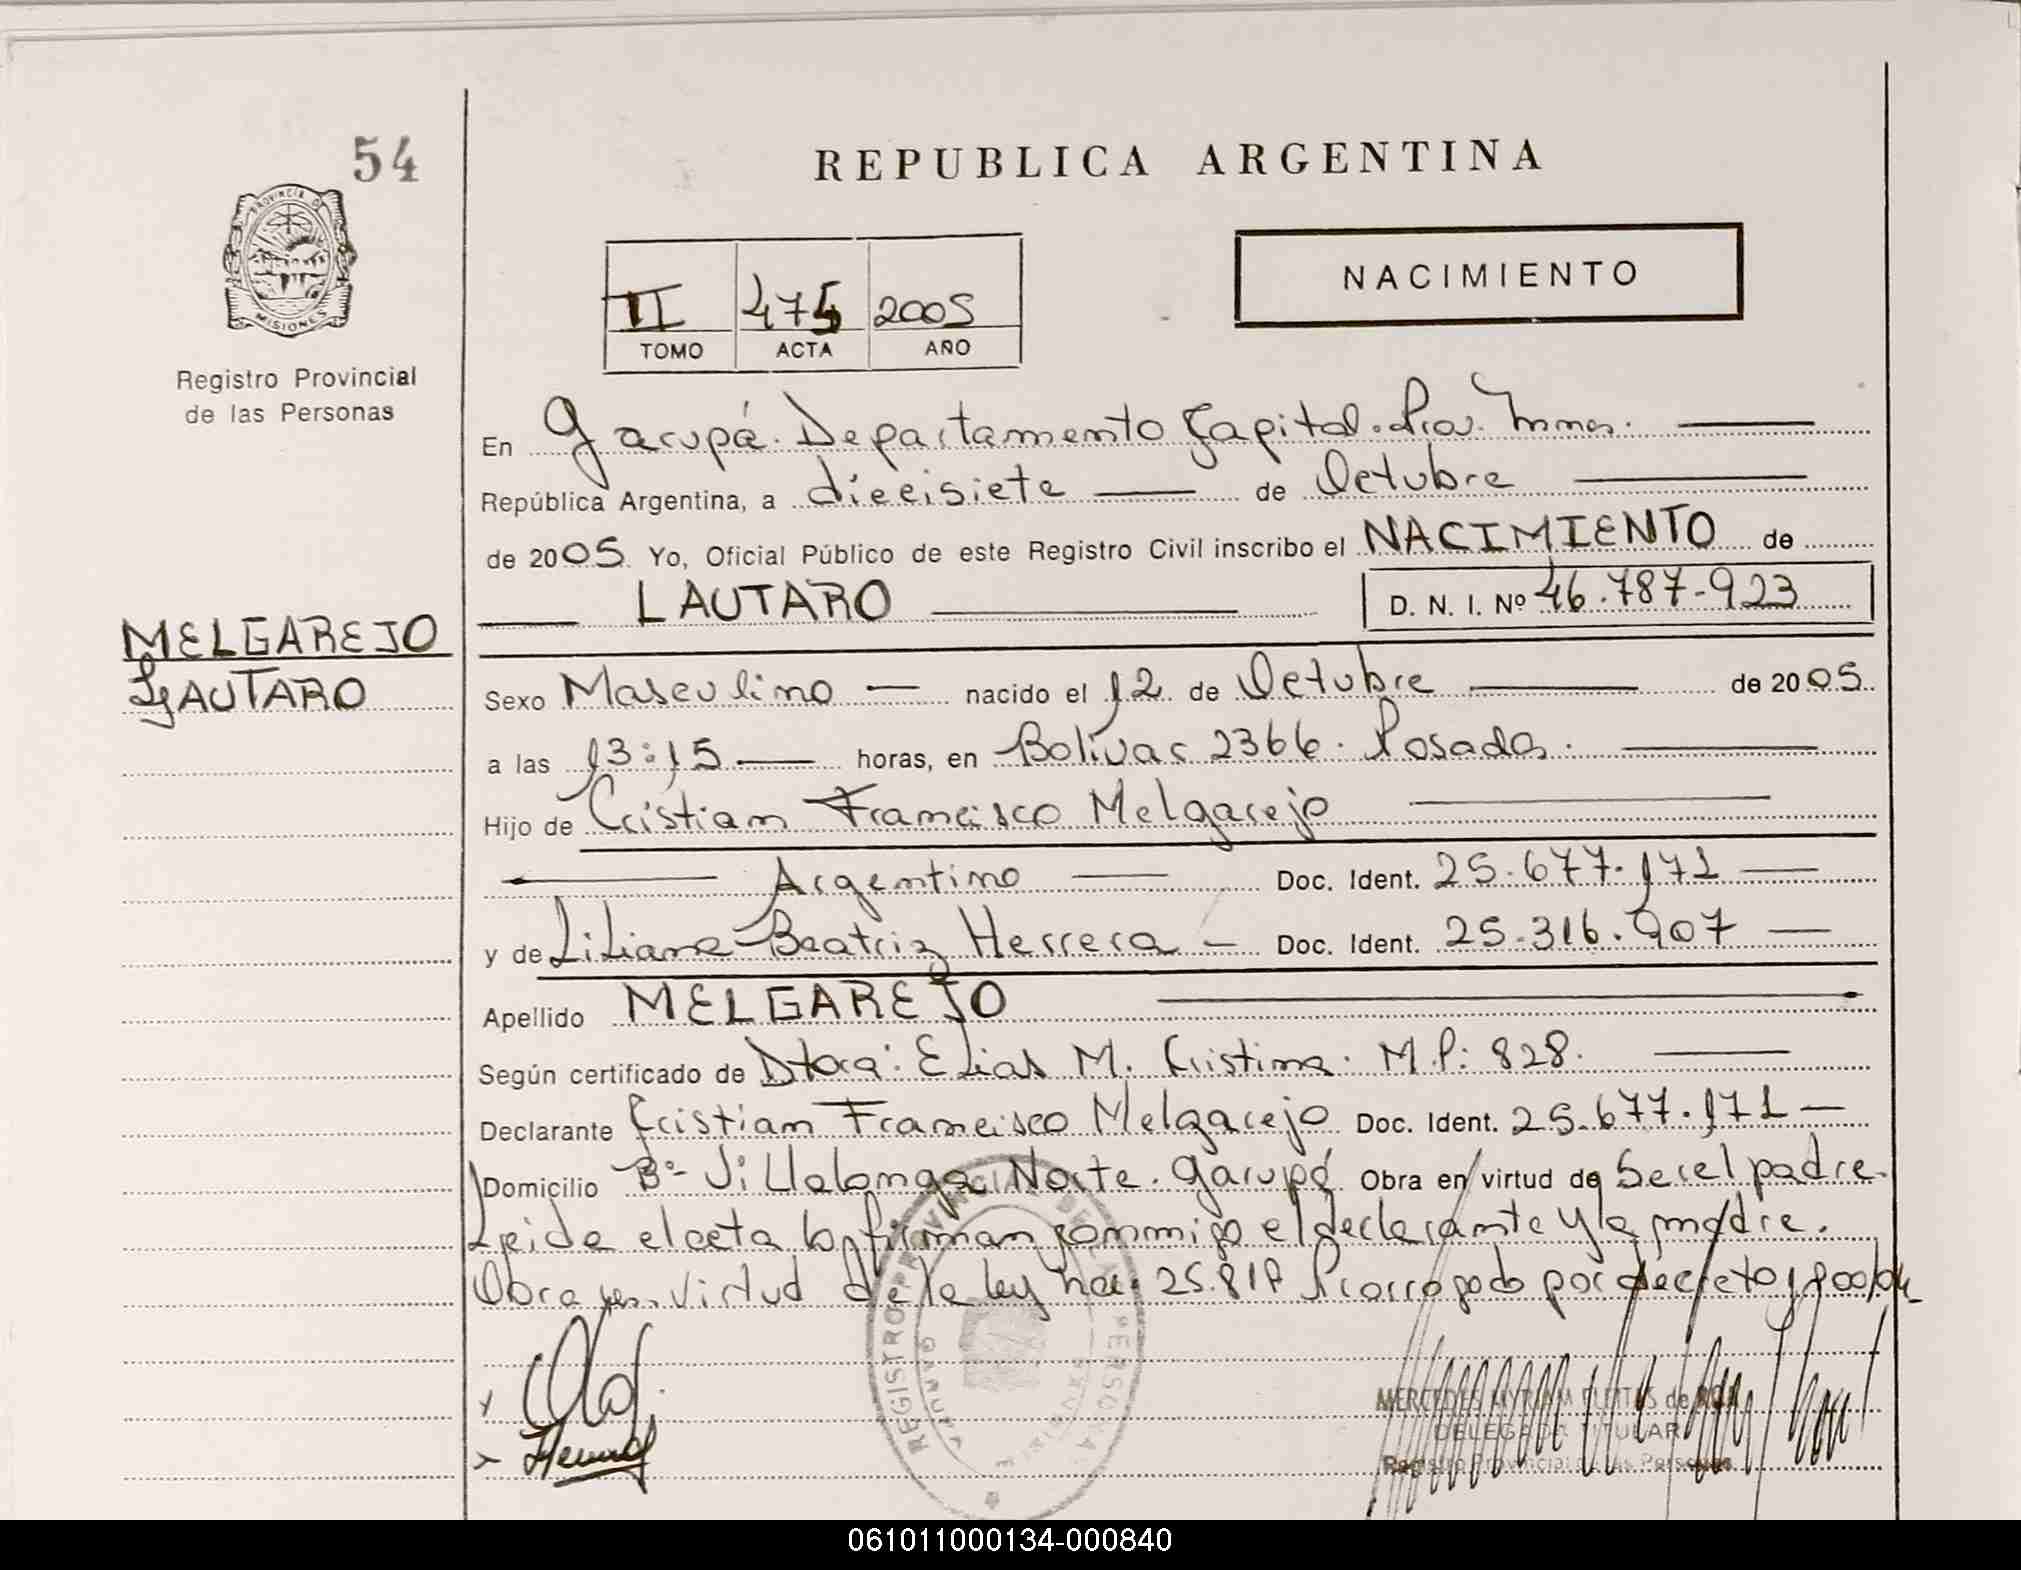 54
REPUBLICA ARGENTINA
PROVINCIA D
MISIONES
Registro Provincial
de las Personas
II 475 2005
TOMO ACTA AÑO
NACIMIENTO
En Garupá. Departamento Capital. Prov. Mnes.
República Argentina, a diecisiete de Octubre
de 2005 Yo, Oficial Público de este Registro Civil inscribo el NACIMIENTO de
LAUTARO D. N. I. Nº 46.787.923
MELGAREJO
LAUTARO
Sexo Masculino nacido el 12 de Octubre de 2005
a las 13:15 horas, en Bolívar 2366. Posadas.
Hijo de Cristian Francisco Melgarejo
Argentino Doc. Ident. 25.677.171
y de Liliana Beatriz Herrera Doc. Ident. 25.316.907
Apellido MELGAREJO
Según certificado de Dtora: Elias M. Cristina. M.P: 828.
Declarante Cristian Francisco Melgarejo Doc. Ident. 25.677.171
Domicilio Bº Villalonga Norte. Garupá Obra en virtud de Ser el padre.
Leida el acta la firman conmigo el declarante y la madre.
Obra en virtud de la ley nac. 25.819 Prorrogado por decreto
REGISTRO PROVINCIAL DE LAS PERSONAS
GARUPA
MERCEDES MYRIAM FLEITAS de
DELEGADA TITULAR
Registro Provincial de las Personas
061011000134-000840